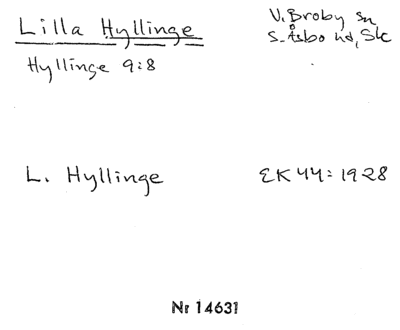 Lilla Hyllinge
V. Broby sn
S. Åsbo hd, Sk
Hyllinge 9:8
L. Hyllinge
EK 44: 1928
Nr 14631